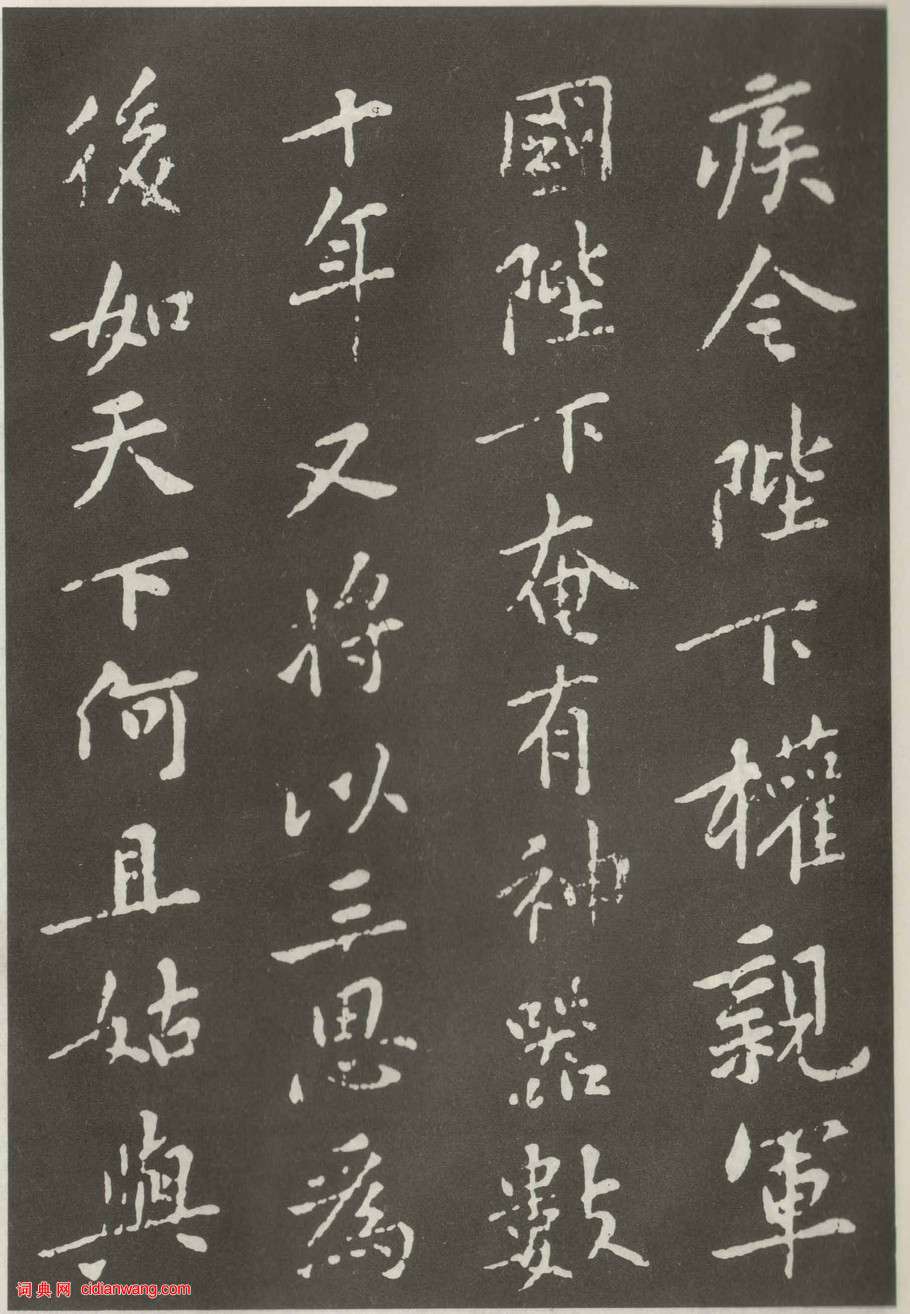 疾令陛下權親軍
國陛下奄有神器數
十年又將以三思爲
後如天下何且姑與
词典网 cidianwang.com